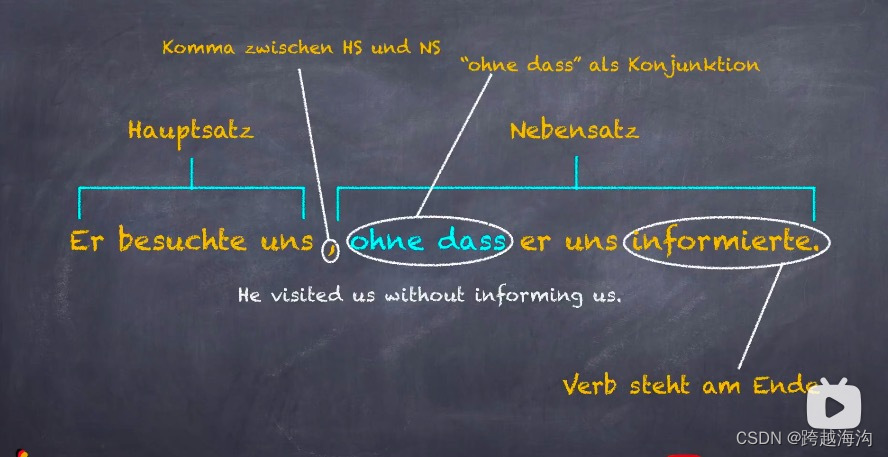 Komma zwischen HS und NS
"ohne dass" als Konjunktion
Hauptsatz
Nebensatz
Er besuchte uns , ohne dass er uns informierte.
He visited us without informing us.
Verb steht am Ende
CSDN @跨越海沟